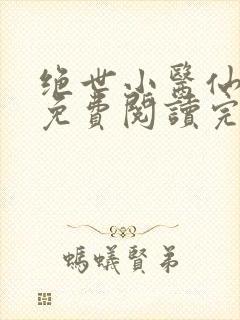 绝世小醫仙
免費閱讀完
螞蟻賢弟